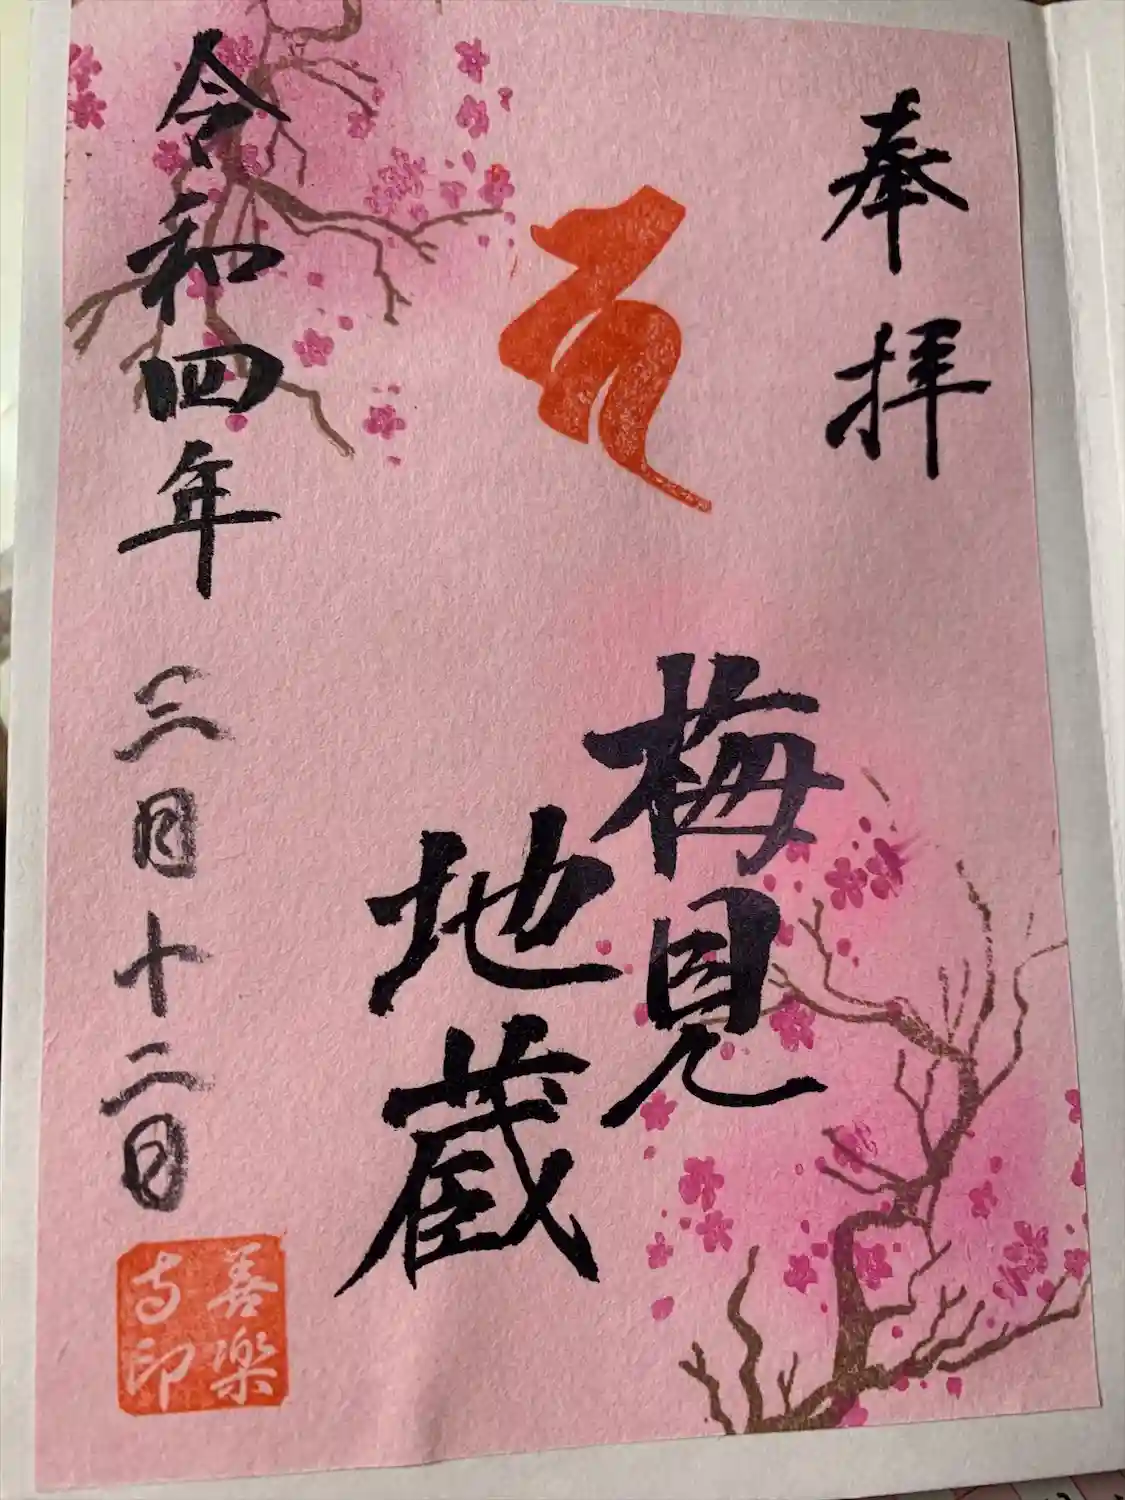 奉拝
梅見
地蔵
令和四年三月十二日
善楽
寺印